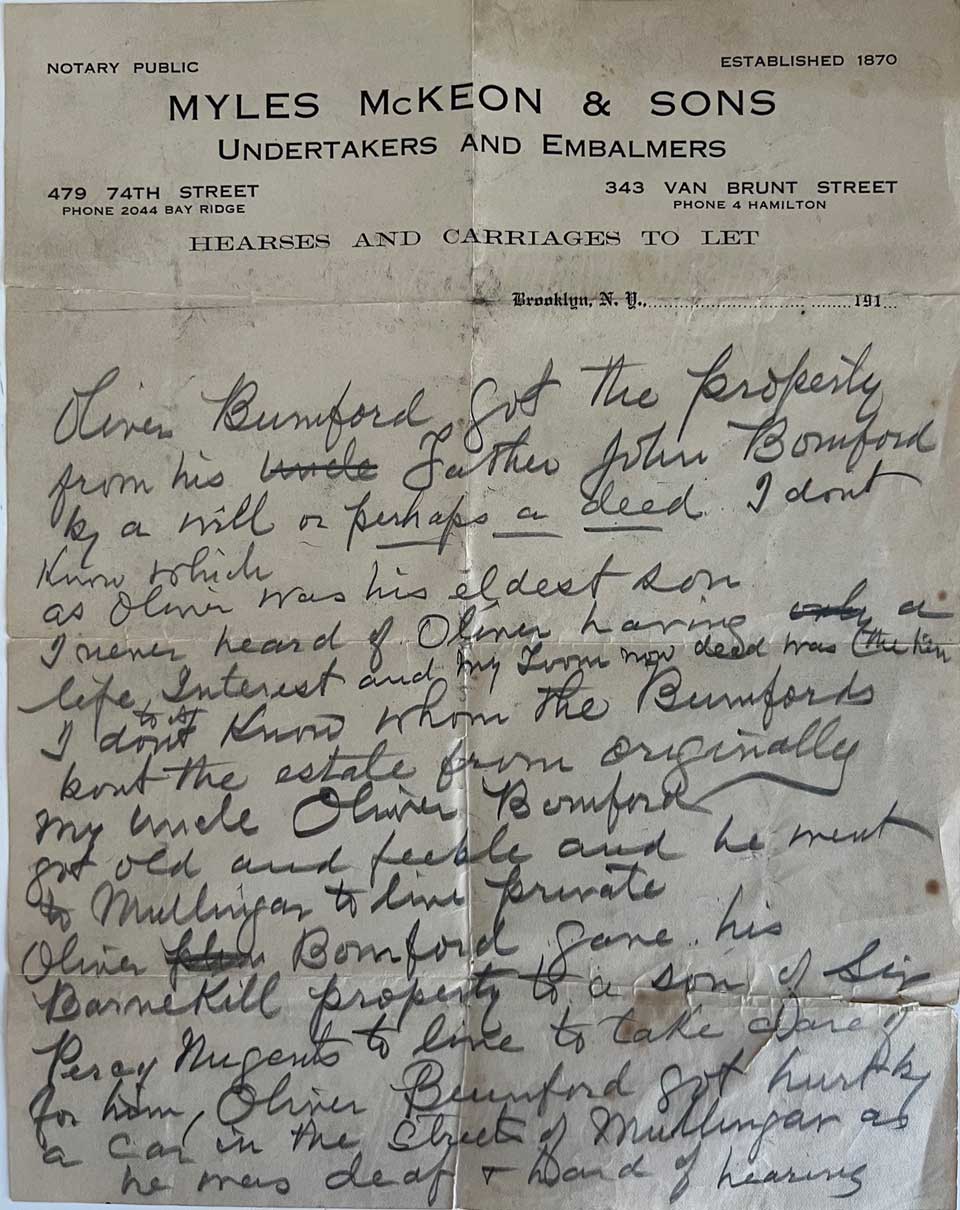 NOTARY PUBLIC
ESTABLISHED 1870
MYLES McKEON & SONS
UNDERTAKERS AND EMBALMERS
479 74TH STREET
343 VAN BRUNT STREET
PHONE 2044 BAY RIDGE
PHONE 4 HAMILTON
HEARSES AND CARRIAGES TO LET
Brooklyn, N. Y., 191
Oliver Bumford got the property
from his uncle Father John Bomford
by a will or perhaps a deed I dont
Know which
as Oliver was his eldest son
I never heard of Oliver having only a
life Interest and my now deed was (the
to it
I dont Know whom the Bumfords
the estate from originally
my uncle Oliver Bomford
got old and feeble and he went
to Mullingar to live private
Oliver Bomford gave his
BarneKill property to a son of Sir
Percy Nugents to live to take care of
for him, Oliver Bumford got hurt by
a car in the street of Mullingar as
he was deaf + hard of hearing